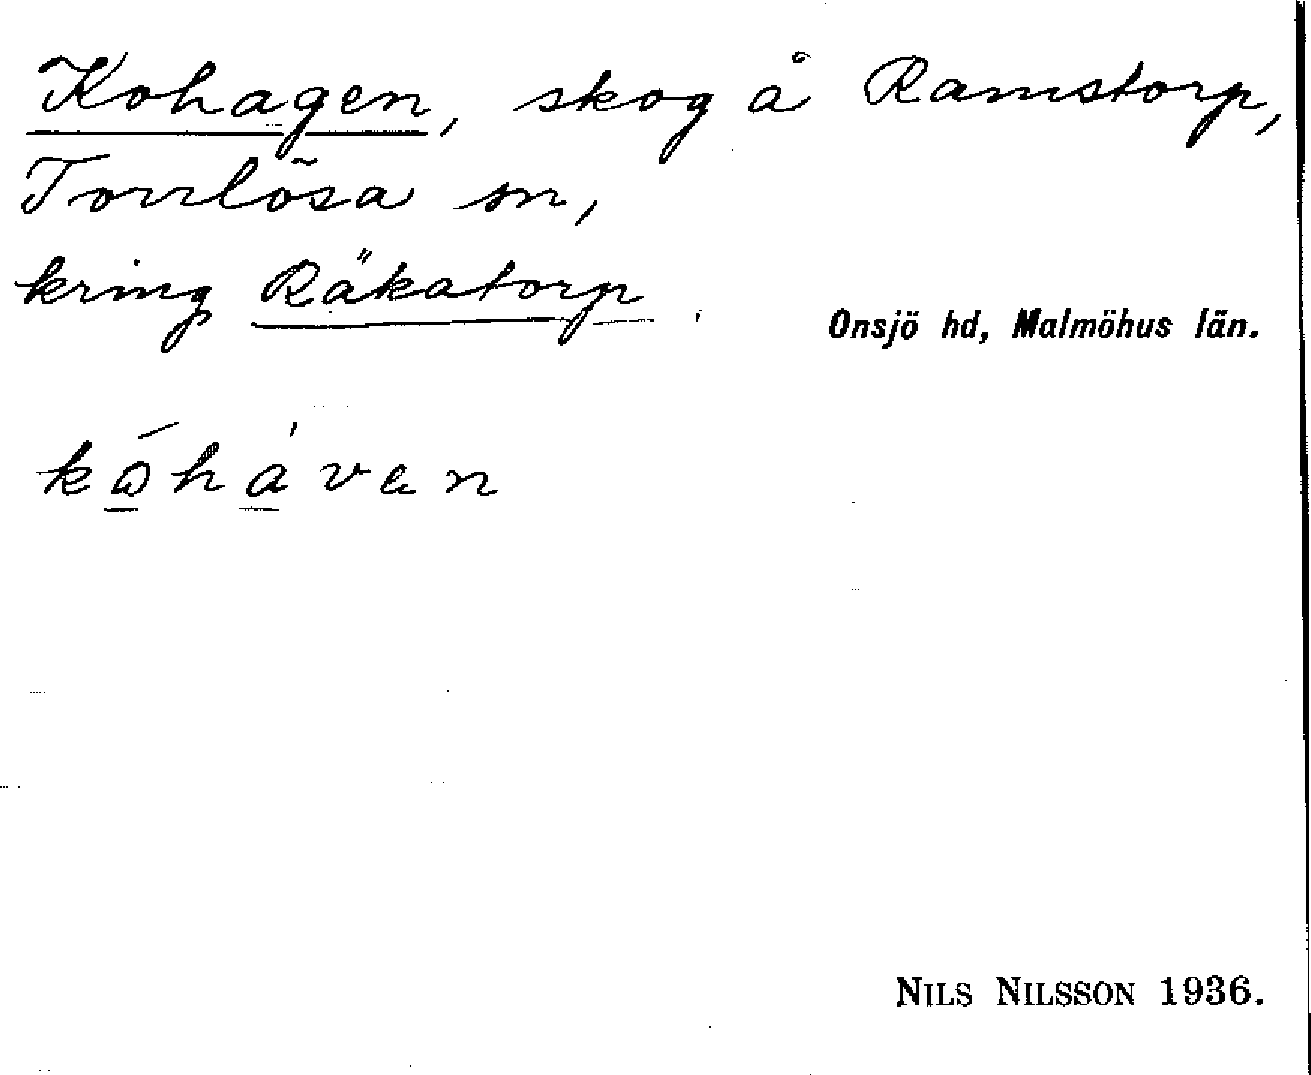 Kohagen, skog å Ramstorp,
Torrlösa sn,
kring Räkatorp.
Onsjö hd, Malmöhus län.
kóháven
NILS NILSSON 1936.